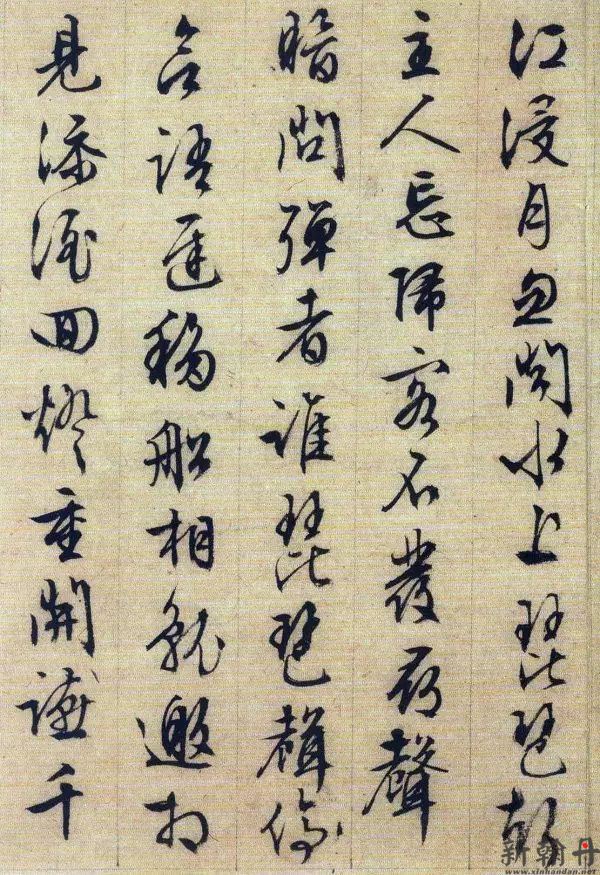 江浸月忽聞水上琵琶聲
主人忘歸客不發尋聲
暗問彈者誰琵琶聲停
欲語遲移船相就邀相
見添酒回燈重開讌千
新翰丹
www.xinhandan.net